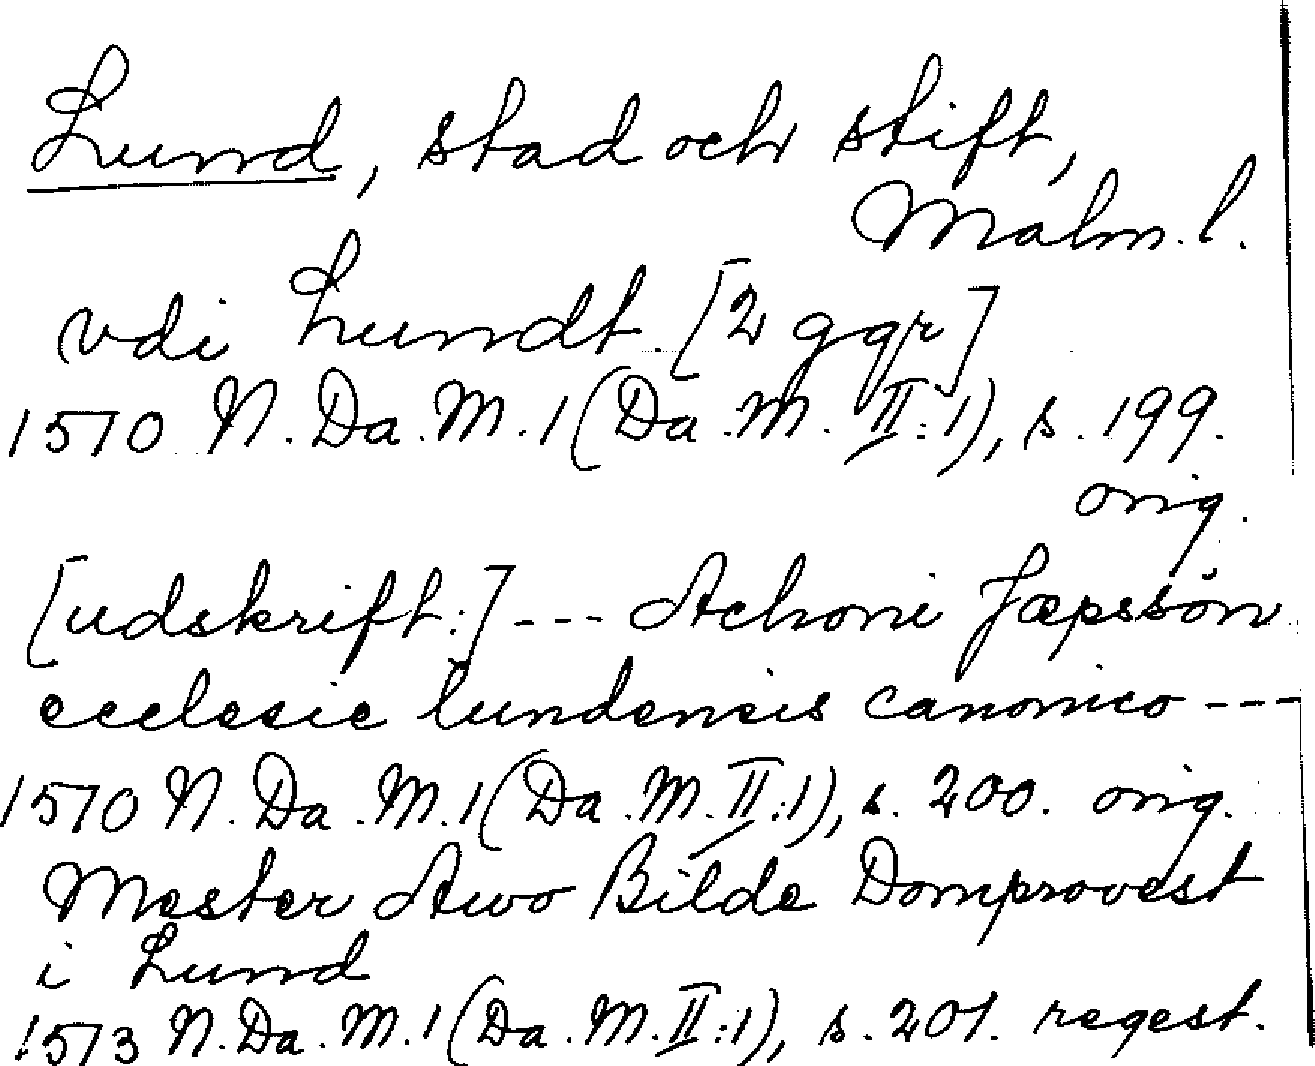 Lund, stad och stift,
Malm. l.
vdi Lundt. [2 ggr]
1570 N. Da. M. 1 (Da. M. II:1), s. 199.
orig.
[udskrift:] --- Achoni Jæpssøn
ecclesie lundensis canonico ---
1570 N. Da. M. 1 (Da. M. II:1), s. 200. orig.
Mester Awo Bilde Domprovest
i Lund
1573 N. Da. M. 1 (Da. M. II:1), s. 201. regest.